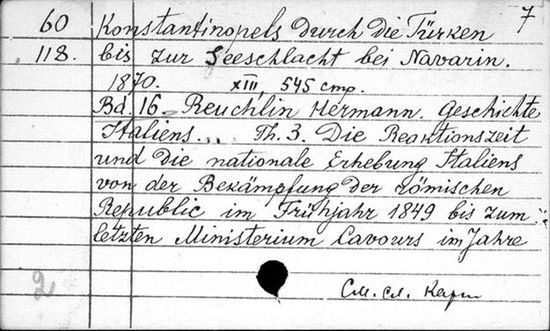 7
60 Konstantinopels durch die Türken
118. bis zur Seeschlacht bei Navarin.
1870. XIII, 545 cmp.
Bd. 16. Reuchlin Hermann. Geschichte
Italiens... Th. 3. Die Reaktionszeit
und die nationale Erhebung Italiens
von der Bekämpfung der römischen
Republic im Frühjahr 1849 bis zum
letzten Ministerium Cavours im Jahre
2
См. сл. карт